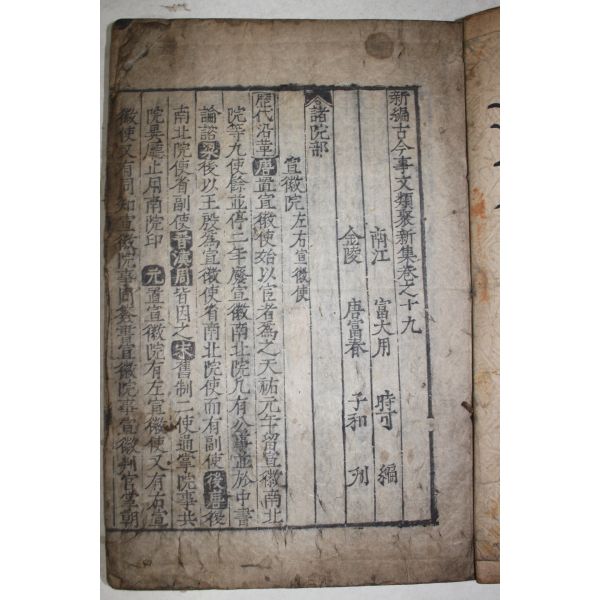 新編古今事文類聚新集卷之十九
南江 富大用 時可 編
金陵 唐富春 子和 刊
諸院部
宣徽院 左右宣徽使
歷代沿革 唐置宣徽使始以宦者爲之天祐元年留宣徽南北
院等九使餘並停二年廢宣徽南北院凡有公事並於中書
論諮 梁後以王殷爲宣徽使省南北院使而有副使 後唐後
南北院使省副使 晉漢周皆因之 宋舊制二使通掌院事共
院異廳止用南院印 元置宣徽院有左宣徽使又有右宣
徽使又有同知宣徽院事同簽書宣徽院事宣徽判官掌朝